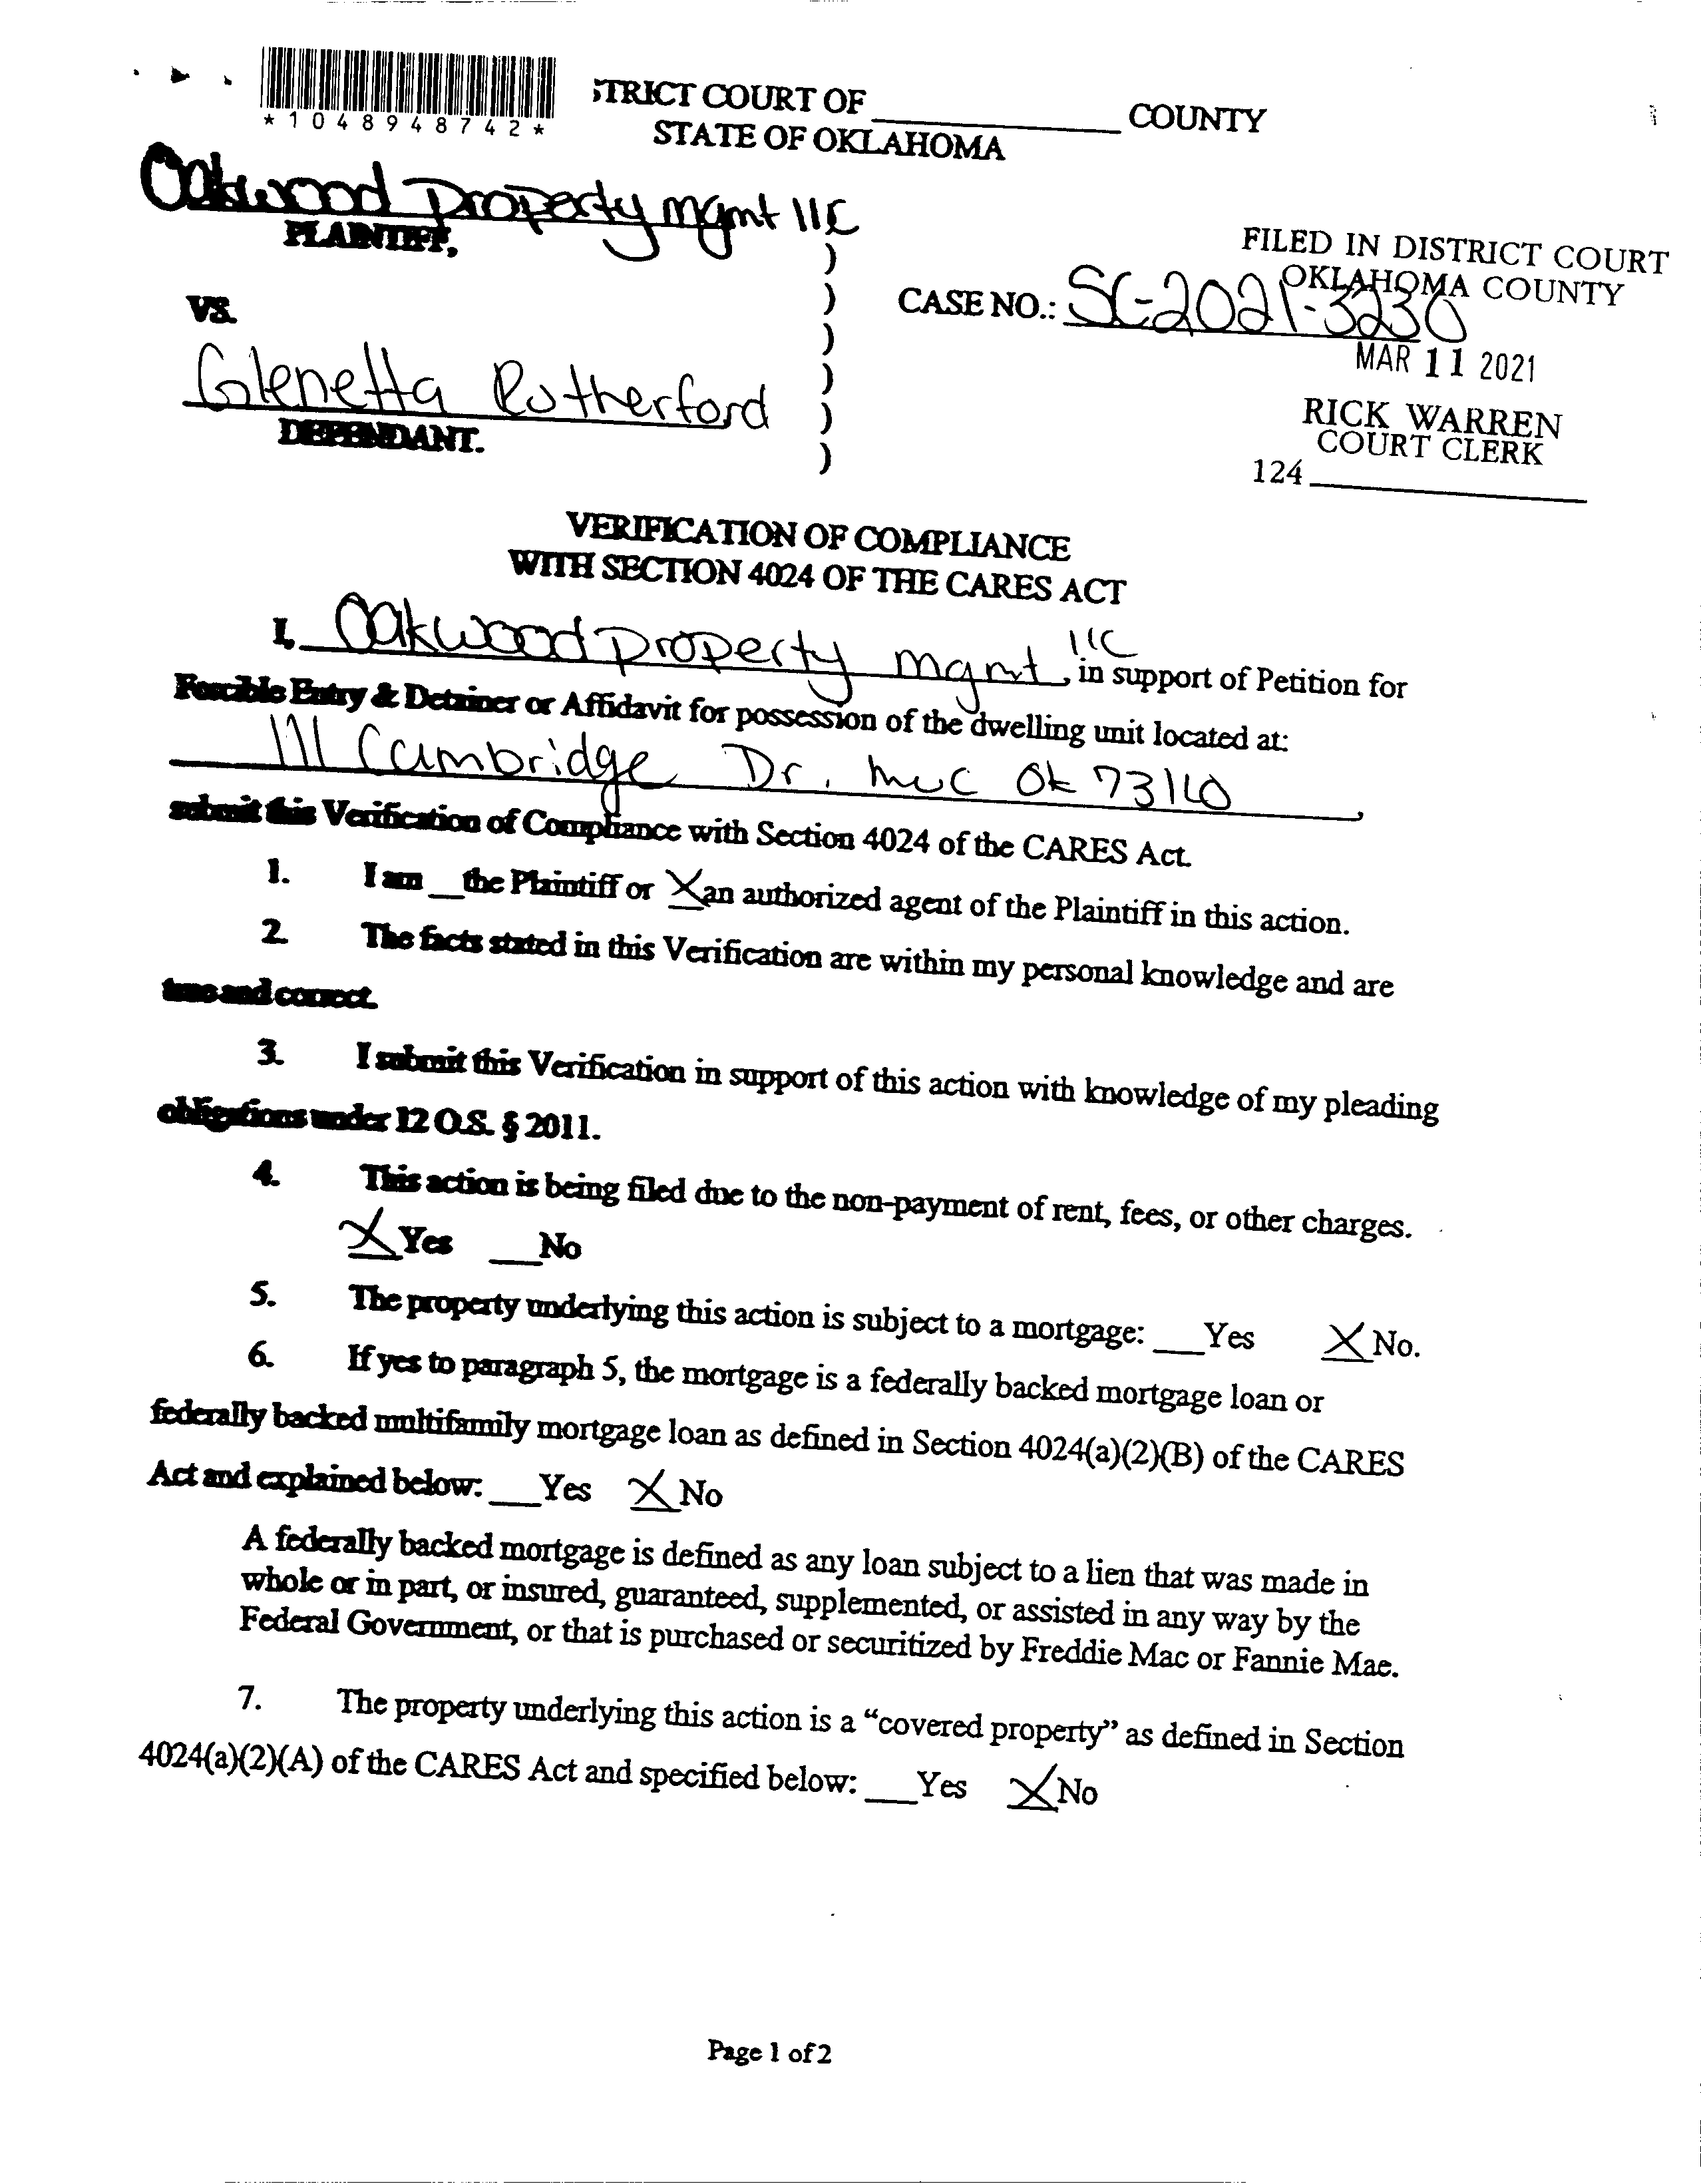 *1048948742*
STRICT COURT OF ____________ COUNTY
STATE OF OKLAHOMA
Oakwood Property mgmt llc
PLAINTIFF,
VS.
Glenetta Rutherford
DEFENDANT.
)
)
)
)
)
)
FILED IN DISTRICT COURT
OKLAHOMA COUNTY
CASE NO.: SC-2021-3230
MAR 11 2021
RICK WARREN
COURT CLERK
124 ____________
VERIFICATION OF COMPLIANCE
WITH SECTION 4024 OF THE CARES ACT
I, Oakwood property mgmt llc, in support of Petition for
Forcible Entry & Detainer or Affidavit for possession of the dwelling unit located at:
111 Cambridge Dr. mwc Ok 73110,
submit this Verification of Compliance with Section 4024 of the CARES Act.
1. I am __the Plaintiff or X an authorized agent of the Plaintiff in this action.
2. The facts stated in this Verification are within my personal knowledge and are
true and correct.
3. I submit this Verification in support of this action with knowledge of my pleading
obligations under 12 O.S. § 2011.
4. This action is being filed due to the non-payment of rent, fees, or other charges.
X Yes ___No
5. The property underlying this action is subject to a mortgage: ___Yes X No.
6. If yes to paragraph 5, the mortgage is a federally backed mortgage loan or
federally backed multifamily mortgage loan as defined in Section 4024(a)(2)(B) of the CARES
Act and explained below: ___Yes X No
A federally backed mortgage is defined as any loan subject to a lien that was made in
whole or in part, or insured, guaranteed, supplemented, or assisted in any way by the
Federal Government, or that is purchased or securitized by Freddie Mac or Fannie Mae.
7. The property underlying this action is a “covered property” as defined in Section
4024(a)(2)(A) of the CARES Act and specified below: ___Yes X No
Page 1 of 2